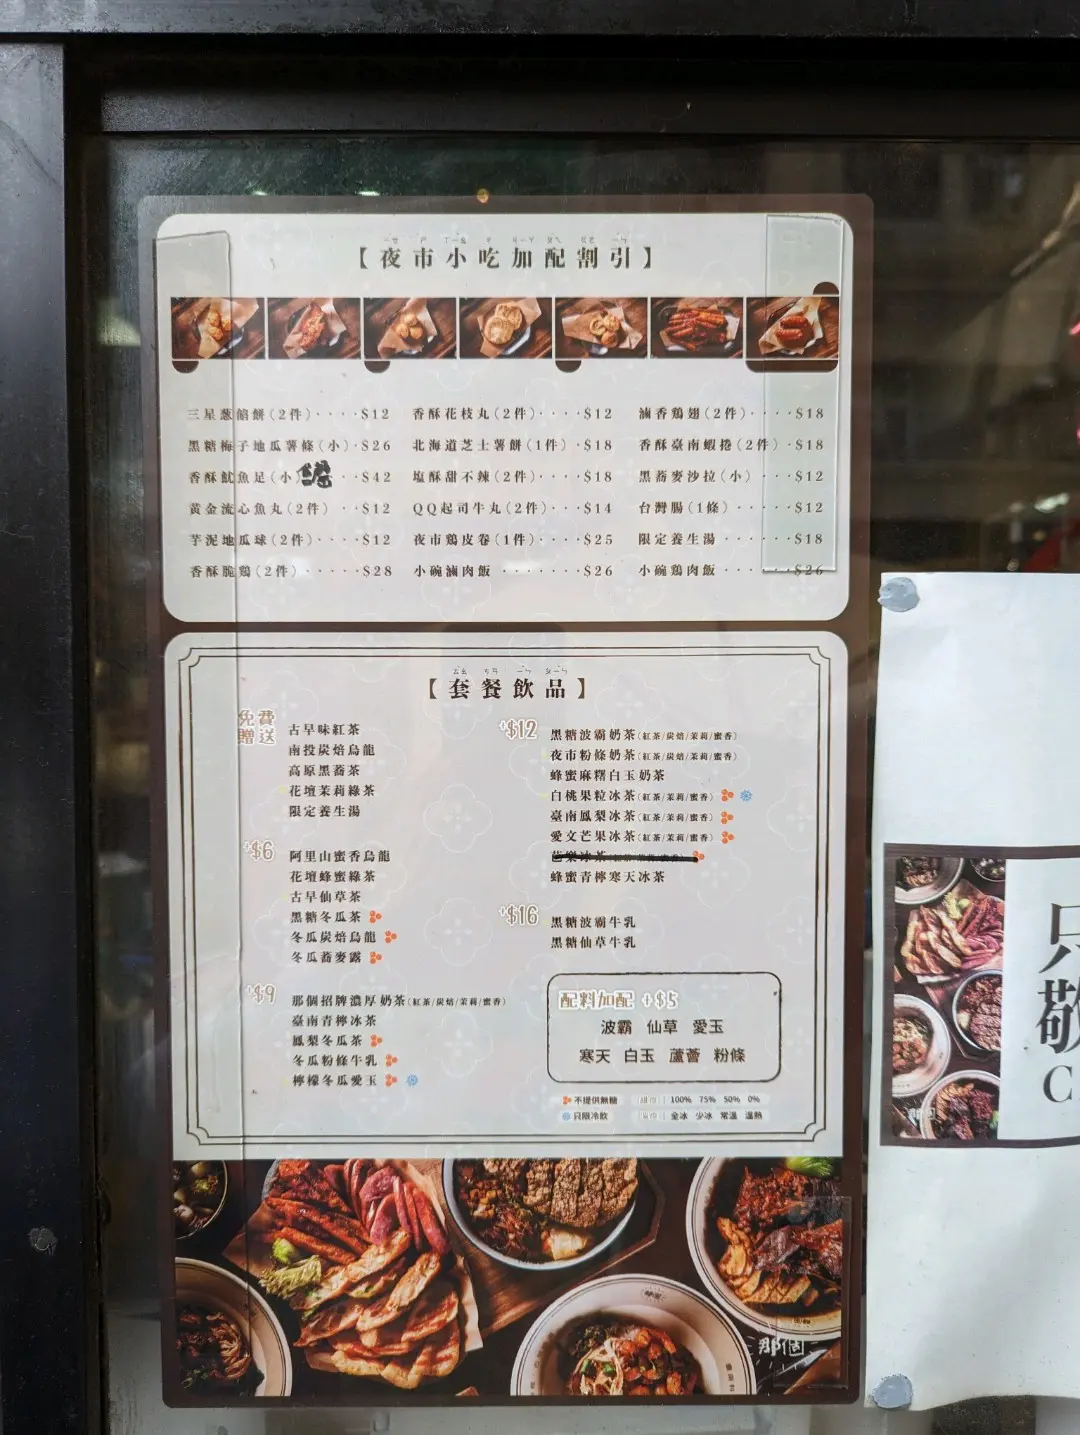 【夜市小吃加配割引】
三星蔥餡餅(2件)····$12
黑糖梅子地瓜薯條(小)·$26
香酥魷魚足(小)··$42
黃金流心魚丸(2件)··$12
芋泥地瓜球(2件)····$12
香酥脆鶏(2件)·····$28
香酥花枝丸(2件)····$12
北海道芝士薯餅(1件)·$18
塩酥甜不辣(2件)····$18
QQ起司牛丸(2件)···$14
夜市鶏皮卷(1件)····$25
小碗滷肉飯·······$26
滷香鶏翅(2件)····$18
香酥臺南蝦捲(2件)·$18
黑蕎麥沙拉(小)···$12
台灣腸(1條)·····$12
限定養生湯······$18
小碗鶏肉飯······$26
【套餐飲品】
免費
贈送
古早味紅茶
南投炭焙烏龍
高原黑蕎茶
花壇茉莉綠茶
限定養生湯
+$6
阿里山蜜香烏龍
花壇蜂蜜綠茶
古早仙草茶
黑糖冬瓜茶
冬瓜炭焙烏龍
冬瓜蕎麥露
+$9
那個招牌濃厚奶茶(紅茶/炭焙/茉莉/蜜香)
臺南青檸冰茶
鳳梨冬瓜茶
冬瓜粉條牛乳
檸檬冬瓜愛玉
+$12
黑糖波霸奶茶(紅茶/炭焙/茉莉/蜜香)
夜市粉條奶茶(紅茶/炭焙/茉莉/蜜香)
蜂蜜麻糬白玉奶茶
白桃果粒冰茶(紅茶/茉莉/蜜香)
臺南鳳梨冰茶(紅茶/茉莉/蜜香)
愛文芒果冰茶(紅茶/茉莉/蜜香)
芭樂冰茶
蜂蜜青檸寒天冰茶
+$16
黑糖波霸牛乳
黑糖仙草牛乳
配料加配 +$5
波霸 仙草 愛玉
寒天 白玉 蘆薈 粉條
不提供無糖 甜度 100% 75% 50% 0%
只限冷飲 溫度 全冰 少冰 常溫 溫熱
那個
只
敬
C